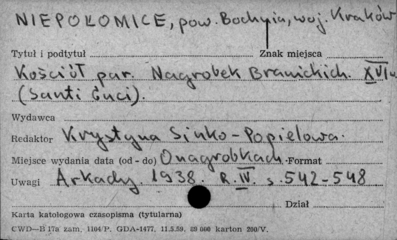 NIEPOŁOMICE, pow. Bochnia, woj. Kraków
Tytuł i podtytuł Znak miejsca
Kościół par. Nagrobek Branickich. XVI w.
(Santi Guci).
Wydawca
Redaktor Krystyna Sinko-Popielowa.
Miejsce wydania data (od - do) O nagrobkach. Format
Uwagi Arkady. 1938. R. IV. s. 542-548
Dział
Karta katologowa czasopisma (tytularna)
CWD—B 17a zam. 1104/P. GDA-1477. 11.5.59. 20 000 karton 250/V.